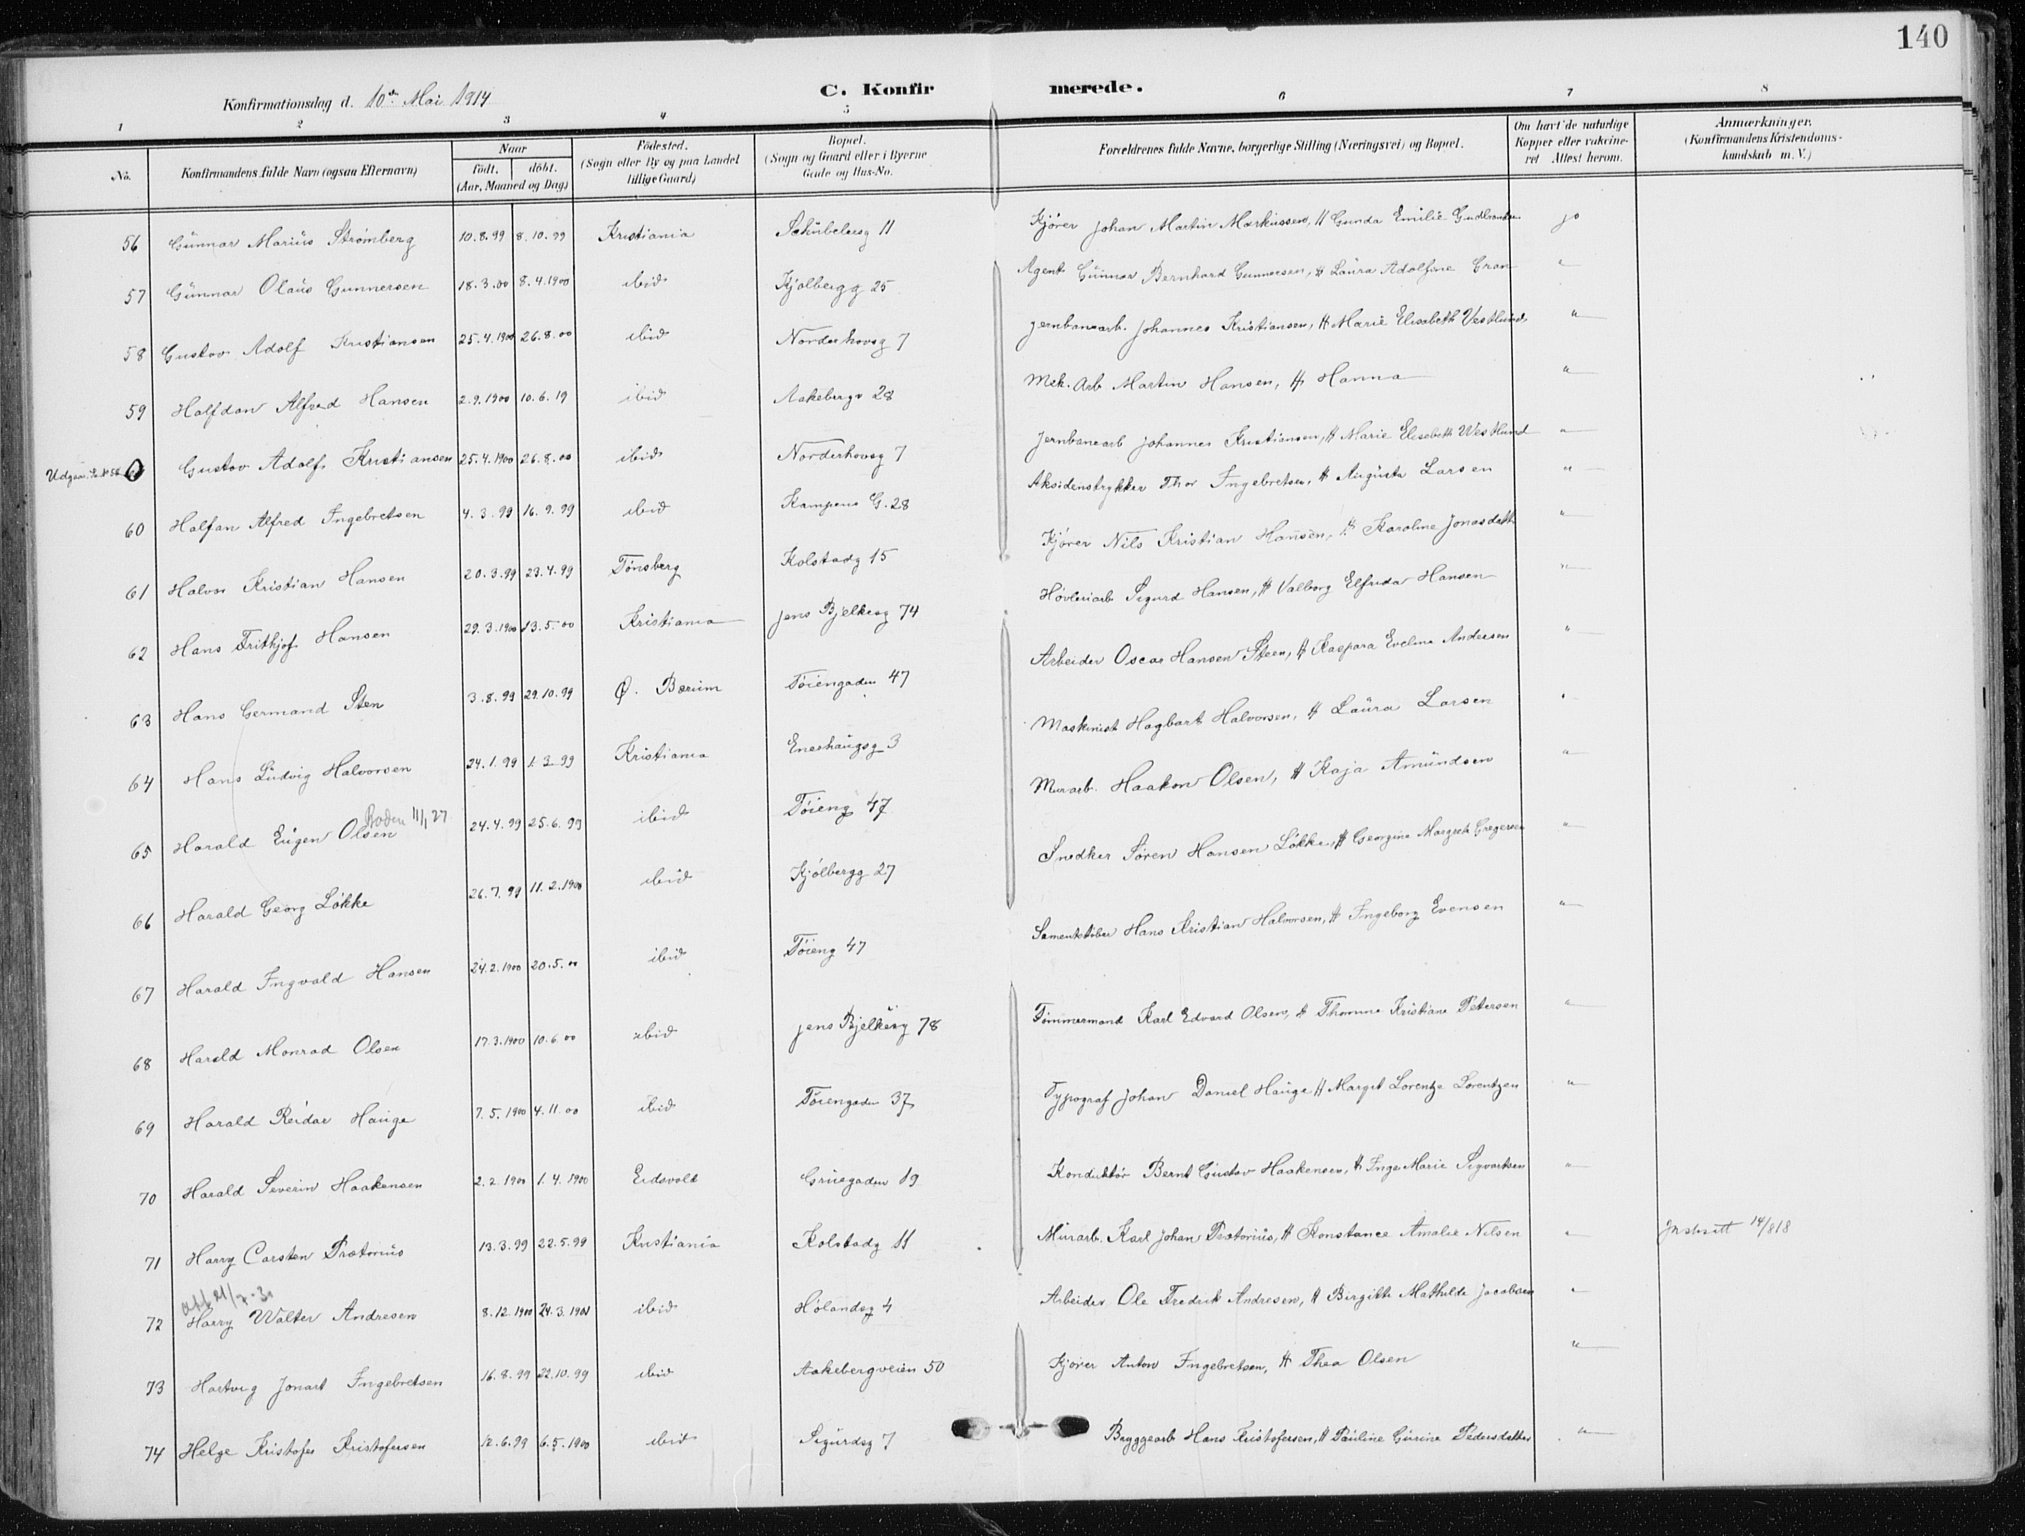 140
Konfirmationsdag d. 10de Mai 1914
C. Konfirmerede.
1 2 3 4 5 6 7 8
No. Konfirmandens fulde Navn (ogsaa Efternavn) Naar født, døbt. (Aar, Maaned og Dag) Fødested. (Sogn eller By og paa Landet tillige Gaard) Bopæl. (Sogn og Gaard eller i Byerne Gade og Hus-No. Forældrenes fulde Navne, borgerlige Stilling (Næringsvei) og Bopæl. Om havt de naturlige Kopper eller vakcineret Attest herom. Anmærkninger. (Konfirmandens Kristendomskundskab m. V.)
56 Gunnar Marius Strømberg 10.8.99 8.10.99 Kristiania Schübelersg 11 Kjører Johan Martin Markussen, H Gunda Emilie Gudbrandsen ja
57 Gunnar Olaus Gunnersen 18.3.00 8.4.1900 ibid Kjølbergg 25 Agent Gunnar Bernhard Gunnersen, H Laura Adolfine Gran "
58 Gustav Adolf Kristiansen 25.4.1900 26.8.00 ibid Norderhovsg 7 Jernbanearb. Johannes Kristiansen, H Marie Elisabeth Vestlund "
59 Halfdan Alfred Hansen 2.9.1900 10.6.19 ibid Aakebergv 28 Mek. Arb Martin Hansen, H Hanna "
Udgaar. Se N 58 0 Gustav Adolf Kristiansen 25.4.1900 26.8.00 ibid Norderhovsg 7 Jernbanearb Johannes Kristiansen, H Marie Elisabeth Westlund "
60 Halfan Alfred Ingebretsen 4.3.99 16.9.99 ibid Kampens G. 28 Aksidenstrykker Thor Ingebretsen, H Augusta Larsen "
61 Halvor Kristian Hansen 20.3.99 23.4.99 Tønsberg Kolstadg 15 Kjører Nils Kristian Hansen, H Karoline Jonasdatt "
62 Hans Frithjof Hansen 29.3.1900 13.5.00 Kristiania Jens Bjelkesg 74 Høvleriarb Sigurd Hansen, H Valborg Elfrida Hansen "
63 Hans Germand Sten 3.8.99 29.10.99 Ø. Bærum Tøiengaden 47 Arbeider Oscar Hansen Steen, H Kaspara Eveline Andersen "
64 Hans Ludvig Halvorsen 24.1.99 1.3.99 Kristiania Enerhaugsg 3 Maskinist Hagbart Halvorsen, H Laura Larsen "
65 Harald Eugen Olsen 24.4.99 25.6.99 ibid Tøieng 47 Murarb. Haakon Olsen, H Kaja Amundsen "
66 Harald Georg Løkke 26.7.99 11.2.1900 ibid Kjølbergg 27 Snedker Søren Hansen Løkke, H Georgine Margrete Gregersen "
67 Harald Ingvald Hansen 24.2.1900 20.5.00 ibid Tøieng 47 Sementstøber Hans Kristian Halvorsen, H Ingeborg Evensen "
68 Harald Monrad Olsen 17.3.1900 10.6.00 ibid Jens Bjelkesg 78 Tømmermand Karl Edvard Olsen, H Thomine Kristiane Petersen "
69 Harald Reidar Hauge 7.5.1900 4.11.00 ibid Tøiengaden 37 Typograf Johan Daniel Hauge H Margit Lorentze Lorentzen "
70 Harald Severin Haakensen 2.2.1900 1.4.1900 Eidsvold Gruegaden 19 Konduktør Bernt Gustav Haakensen, H Inga Marie Sigvartsen "
71 Harry Carsten Prætorius 13.3.99 22.5.99 Kristiania Kolstadg 11 Murarb. Karl Johan Prætorius, H Konstance Amalie Nilsen " 14/818
72 Harry Walter Andresen 8.12.1900 24.3.1901 ibid Hølandsg 4 Arbeider Ole Fredrik Andresen, H Birgitte Mathilde Jacobsen "
73 Hartvig Jonart Ingebretsen 16.8.99 22.10.99 ibid Aakebergveien 50 Kjører Anton Ingebretsen, H Thea Olsen "
74 Helge Kristofer Kristofersen 12.6.99 6.5.1900 ibid Sigurdsg 7 Bryggearb Hans Kristofersen, H Pauline Gurine Pedersdatter "